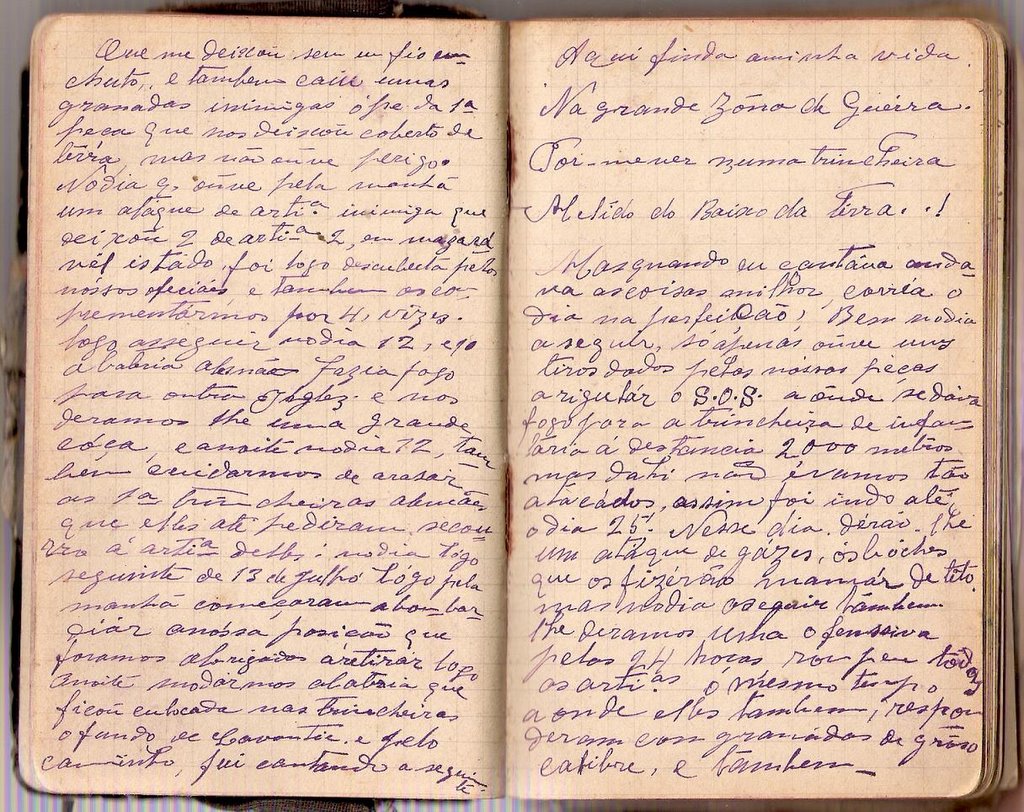 Que me deixou sem um fio en-
chuto, e tambem caiu umas
granadas inimigas ó pe da 1ª
peca que nos deixoũ coberto de
térra, mas não oũve perigo.
No dia q. oũve pela manhã
um atáque de artiª inimiga que
deixoũ 2 de artiª 2, em
vél estádo, foi logo descuberta pelos
nóssos oficiais, e tambem os co-
prementármos por 4, vizes.
logo asseguir no dia 12,
a batria alemão fazia fogo
para outra Inglez. e nos
deramos lhe uma grande
cóça, e anoite no dia 12, tam
bem cuidarmos de arasar
as 1ª trincheiras alemães
que elles até pediram secou-
rro á artiª delles: no dia lógo
seguinte de 13 de Julho lógo pela
manhã começaram abombar-
diár anóssa posicão que
foramos obrigados a retirar logo
anoite mudarmos abatria que
ficoũ culocada nas trincheiras
o fundo de Lavantie. e pelo
caminho, fui cantando a seguin
te
Aqui finda aminha vida.
Na grande Zóna de Guérra.
Por-me ver numa trincheira
Metido do Baixo da Terra..!
Mas quando eu cantáva anda-
va as coisas milhor, corria o
dia na perfeicão; Bem no dia
a seguir, só apenás oũve uns
tiros dados pelas nóssas péças
arigulár o S.O.S. a onde se dáva
fogo para a trincheira de infan-
taria á destancia 2000 métros
mas dahi não éramos tão
atacádos, assim foi indo até
o dia 25. Nesse dia derão lhe
um atáque de gázes, os bóches
que os fizérão mamár de tito.
mas no dia aseguir também
lhe deramos uma ofenssiva
pelas 24 hóras, rompeu tódas
as artiªs ó mesmo tempo
a onde elles tambem, respon
deram com granádas de gróso
calibre, e também